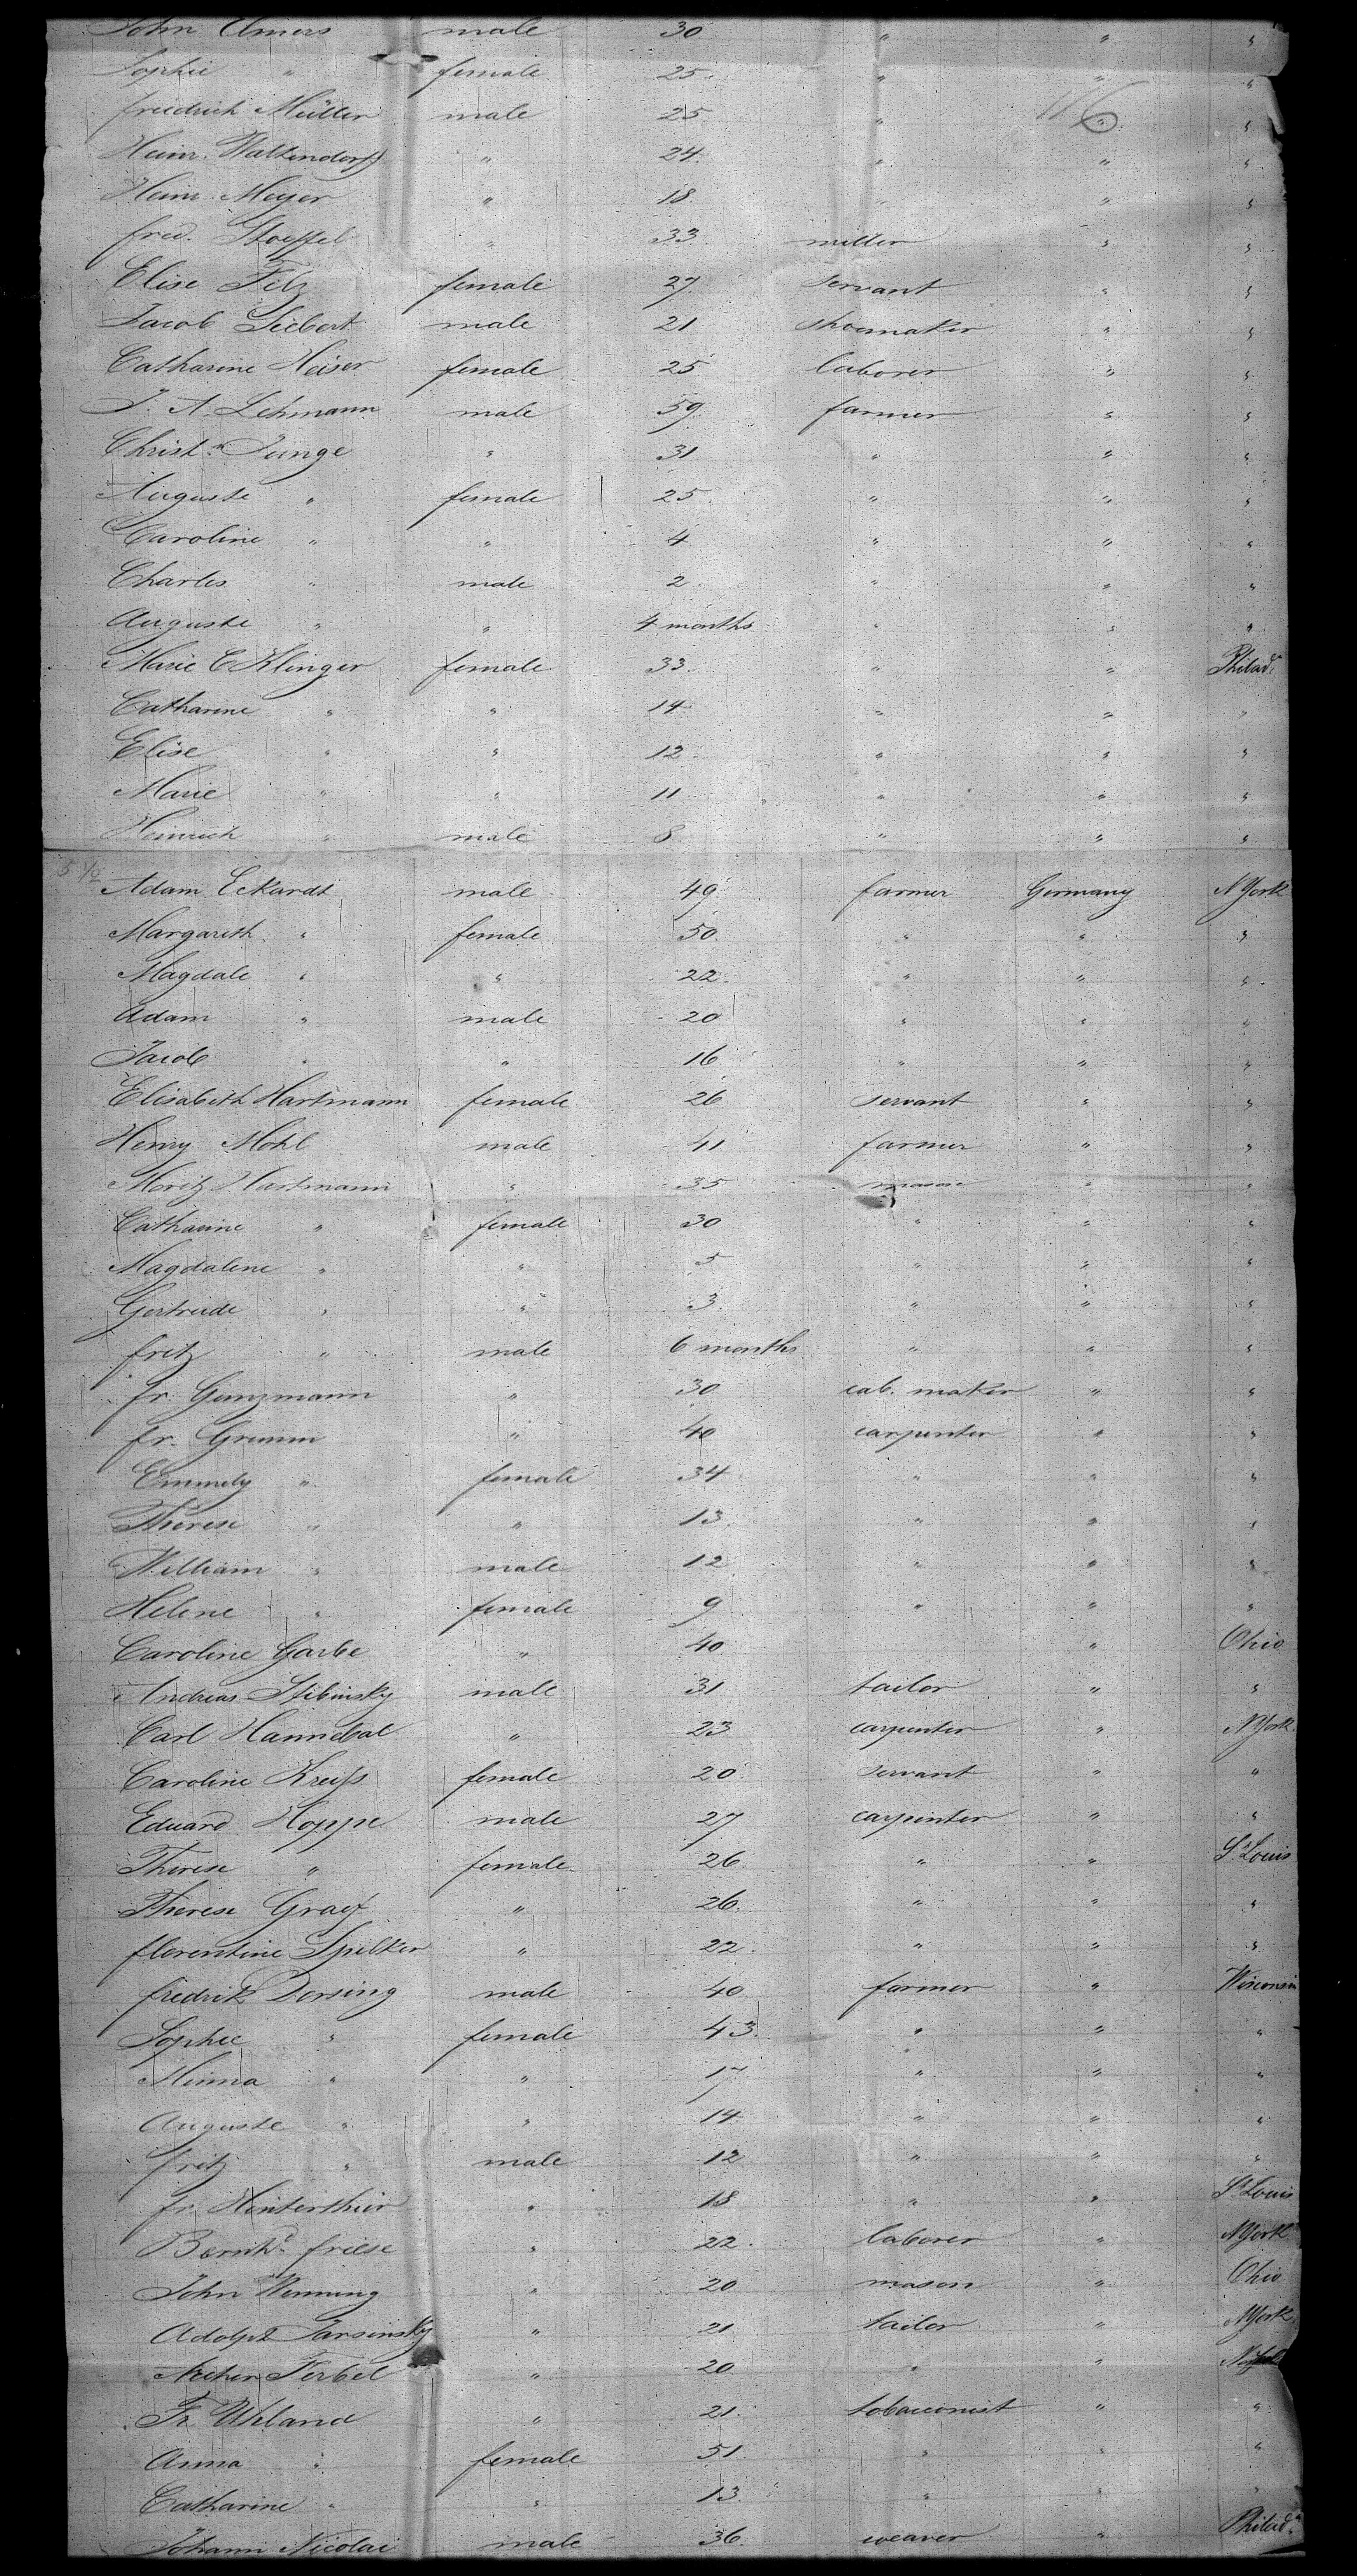 John Amers male 30 " " "
Sophie " female 25 " " "
116
friedrich Müller male 25 " " "
Heinr. Waltzendorff " 24 " " "
Heinr. Meyer " 18 " " "
fried. Stoeffel " 33 miller " "
Elise Filz female 27 servant " "
Jacob Siebert male 21 shoemaker " "
Catharine Heiser female 25 laborer " "
J. A. Lehmann male 59 farmer " "
Christn Junge " 31 " " "
Auguste " female 25 " " "
Caroline " " 4 " " "
Charles " male 2 " " "
Auguste " " 4 months " " "
Marie C Klinger female 33 " " Philada
Catharine " " 14 " " "
Elise " " 12 " " "
Marie " " 11 " " "
Heinrich " male 8 " " "
Adam Eckardt male 49 farmer Germany N York
Margareth " female 50 " " "
Magdale " " 22 " " "
Adam " male 20 " " "
Jacob " " 16 " " "
Elisabeth Hartmann female 26 servant " "
Henry Mohl male 41 farmer " "
Moritz Hartmann " 35 mason " "
Catharine " female 30 " " "
Magdalene " " 5 " " "
Gertrude " " 3 " " "
fritz " male 6 months " " "
fr. Ganzmann " 30 cab. maker " "
fr. Grimm " 40 carpenter " "
Emmely " female 34 " " "
Therese " " 13 " " "
William " male 12 " " "
Helene " female 9 " " "
Caroline Garbe " 40 " Ohio
Andreas Stibinsky male 31 tailor " "
Carl Hannebal " 23 carpenter " N York
Caroline Kreiss female 20 servant " "
Eduard Hoppe male 27 carpenter " "
Therese " female 26 " " St Louis
Therese Graef " 26 " " "
florentine Spilker " 22 " " "
fredrik Dorsing male 40 farmer " Wisconsin
Sophie " female 43 " " "
Minna " " 17 " " "
Auguste " " 14 " " "
fritz " male 12 " " "
fr. Hinterthür " 18 " " St Louis
Bernhd friese " 22 laborer " N York
John Wenning " 20 mason " Ohio
Adolph Jarsinsky " 21 tailor " N York
Ferbel " 20 " "
Fr. Uhland " 21 tobacconist " "
Anna " female 51 " " "
Catharine " " 13 " " "
Johann Nicolai male 36 weaver " Philada